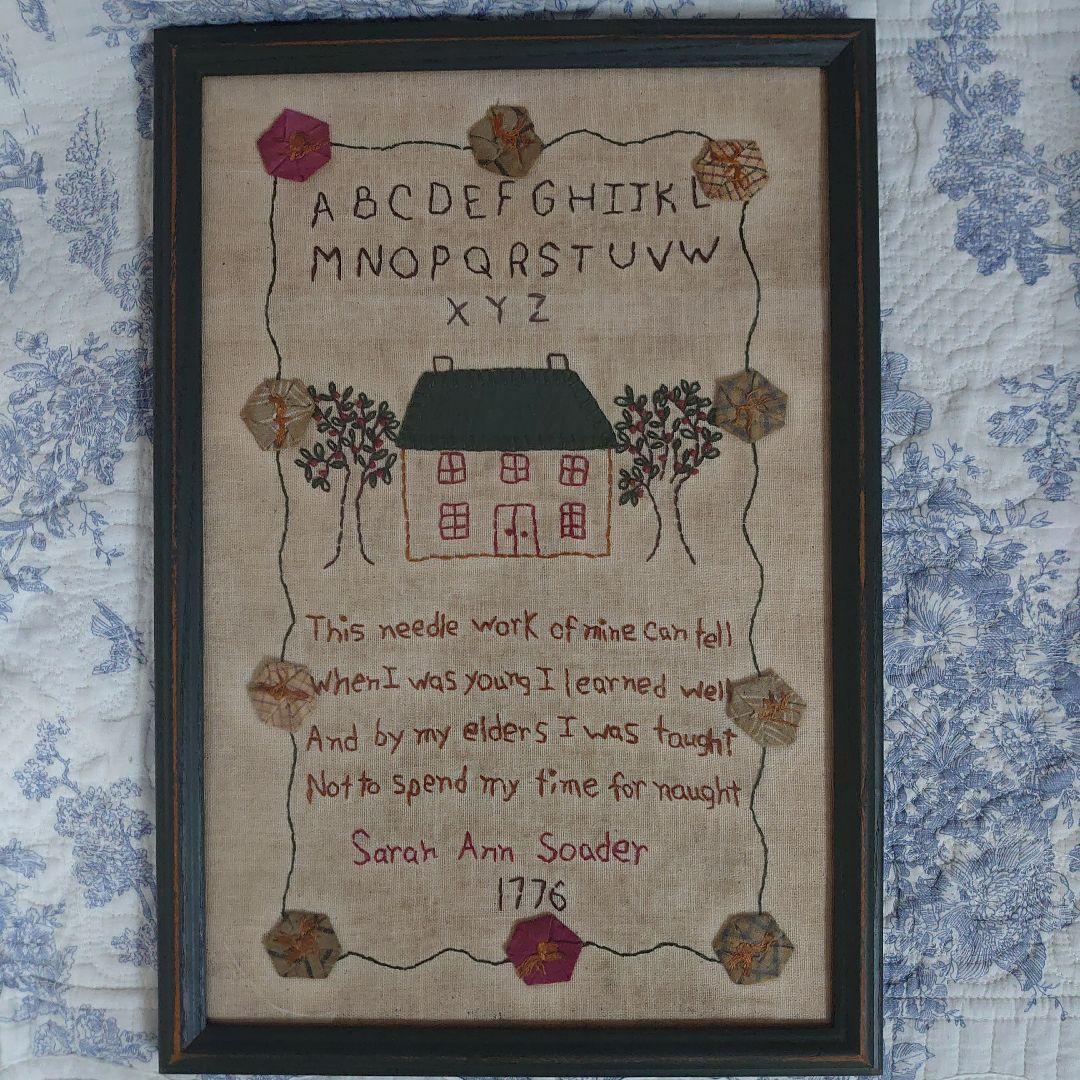 A B C D E F G H I J K L
M N O P Q R S T U V W
X Y Z
This needle work of mine can tell
When I was young I learned well
And by my elders I was taught
Not to spend my time for naught
Sarah Ann Soader
1776